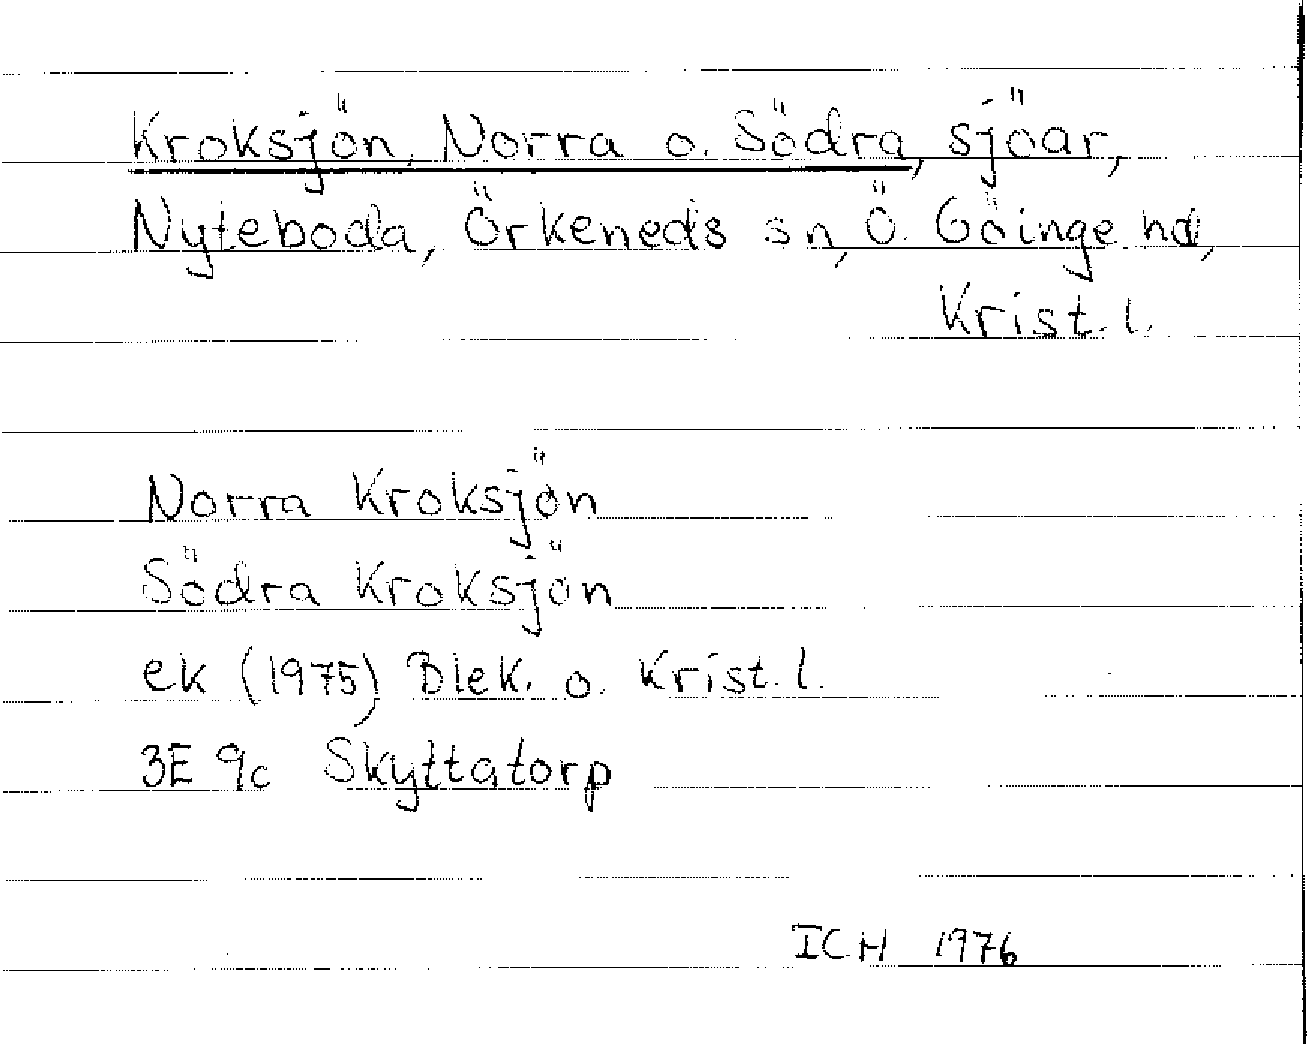 Kroksjön, Norra o. Södra, sjöar,
Nyteboda, Örkeneds sn, Ö. Göinge hd,
Krist. l.
Norra Kroksjön
Södra Kroksjön
ek (1975) Blek. o. Krist. l.
3E 9c Skyttatorp
ICH 1976